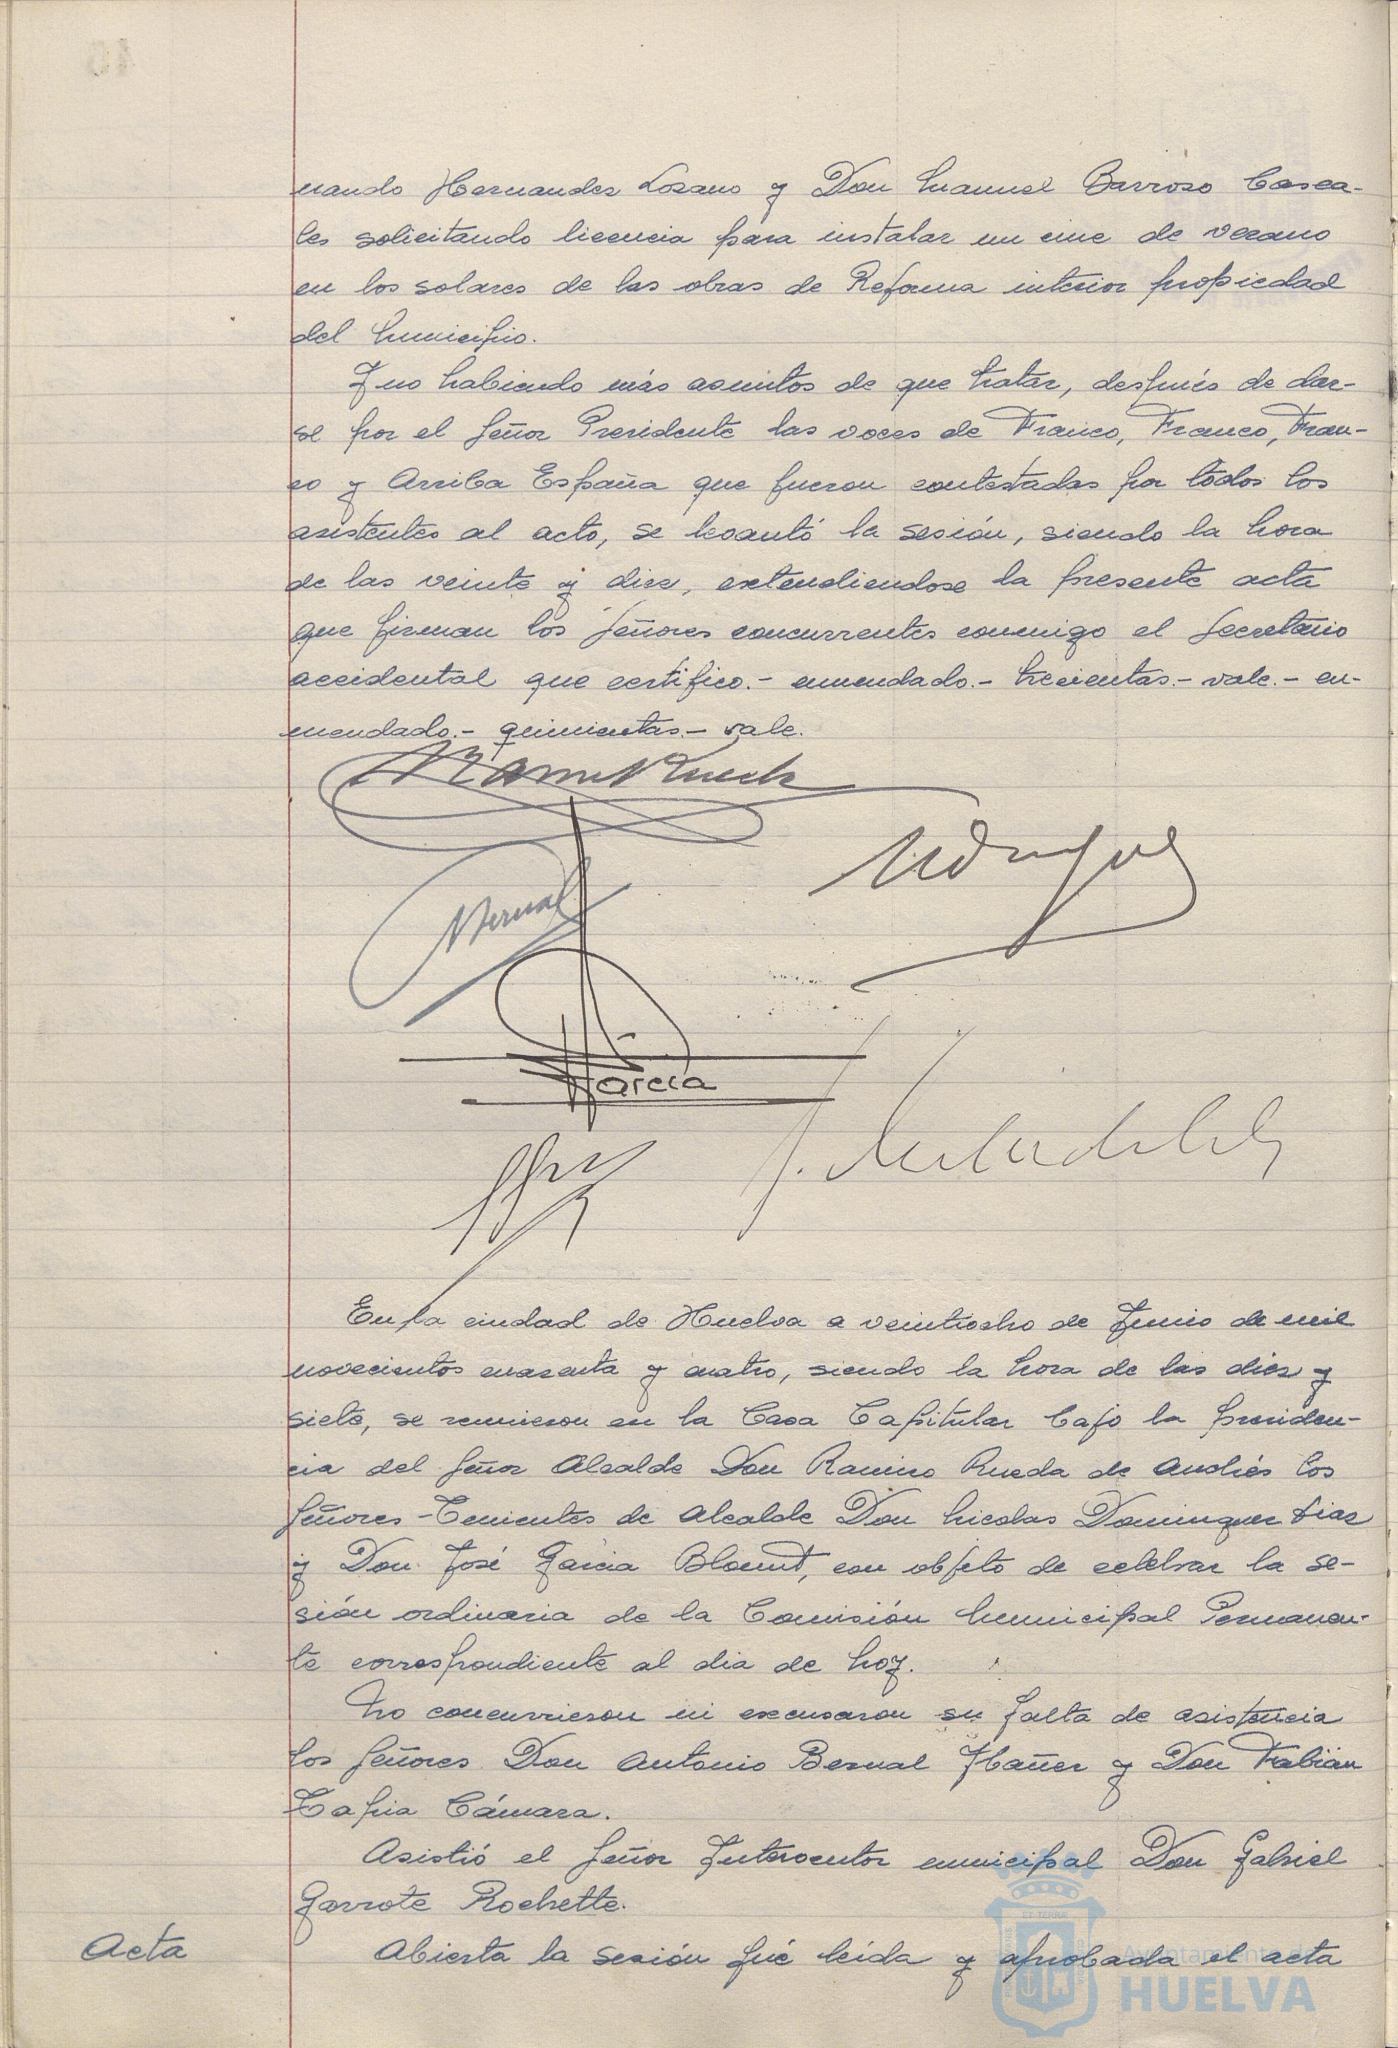 nando Hernandez Lozano y Don Manuel Barroso Casca-
les solicitando licencia para instalar un cine de verano
en los solares de las obras de Reforma interior propiedad
del Municipio.
Y no habiendo más asuntos de que tratar, después de dar-
se por el Señor Presidente las voces de Franco, Franco, Fran-
co y Arriba España que fueron contestadas por todos los
asistentes al acto, se levantó la sesión, siendo la hora
de las veinte y diez, extendiendose la presente acta
que firman los Señores concurrentes conmigo el Secretario
accidental que certifico.- enmendado.- trecientas.- vale.- en-
mendado.- quinientas.- vale.
Bernal
Garcia
En la ciudad de Huelva a veintiocho de Junio de mil
novecientos cuarenta y cuatro, siendo la hora de las diez y
siete, se reunieron en la Casa Capitular bajo la presiden-
cia del Señor Alcalde Don Ramiro Rueda de Andrés los
Señores Tenientes de Alcalde Don Nicolas Dominguez Diaz
y Don José Garcia Blount, con objeto de celebrar la se-
sión ordinaria de la Comisión Municipal Permanen-
te correspondiente al dia de hoy.
No concurrieron ni excusaron su falta de asistencia
los Señores Don Antonio Bernal Ybañez y Don Fabián
Tapia Cámara.
Asistió el Señor Interventor municipal Don Gabriel
Garrote Rochette.
Acta Abierta la sesión fué leida y aprobada el acta
Ayuntamiento de
HUELVA